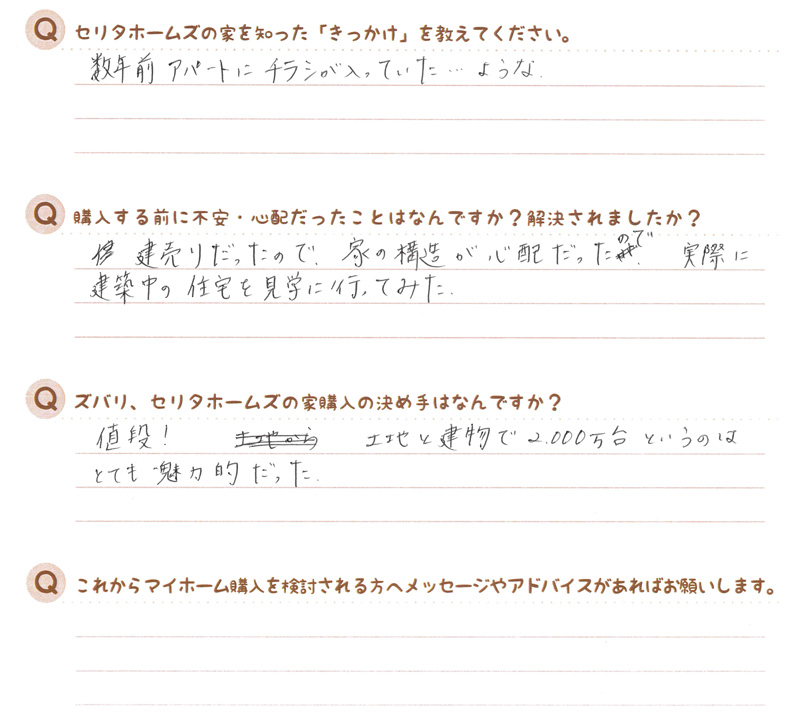 Q セリタホームズの家を知った「きっかけ」を教えてください。
数年前 アパートに チラシが入っていた… ような.
Q 購入する前に不安・心配だったことはなんですか？解決されましたか？
建売りだったので. 家の構造が心配だったので. 実際に
建築中の住宅を見学に行ってみた.
Q ズバリ、セリタホームズの家購入の決め手はなんですか？
値段！ 土地から 土地と建物で 2.000万台 というのは
とても魅力的だった.
Q これからマイホーム購入を検討される方へメッセージやアドバイスがあればお願いします。